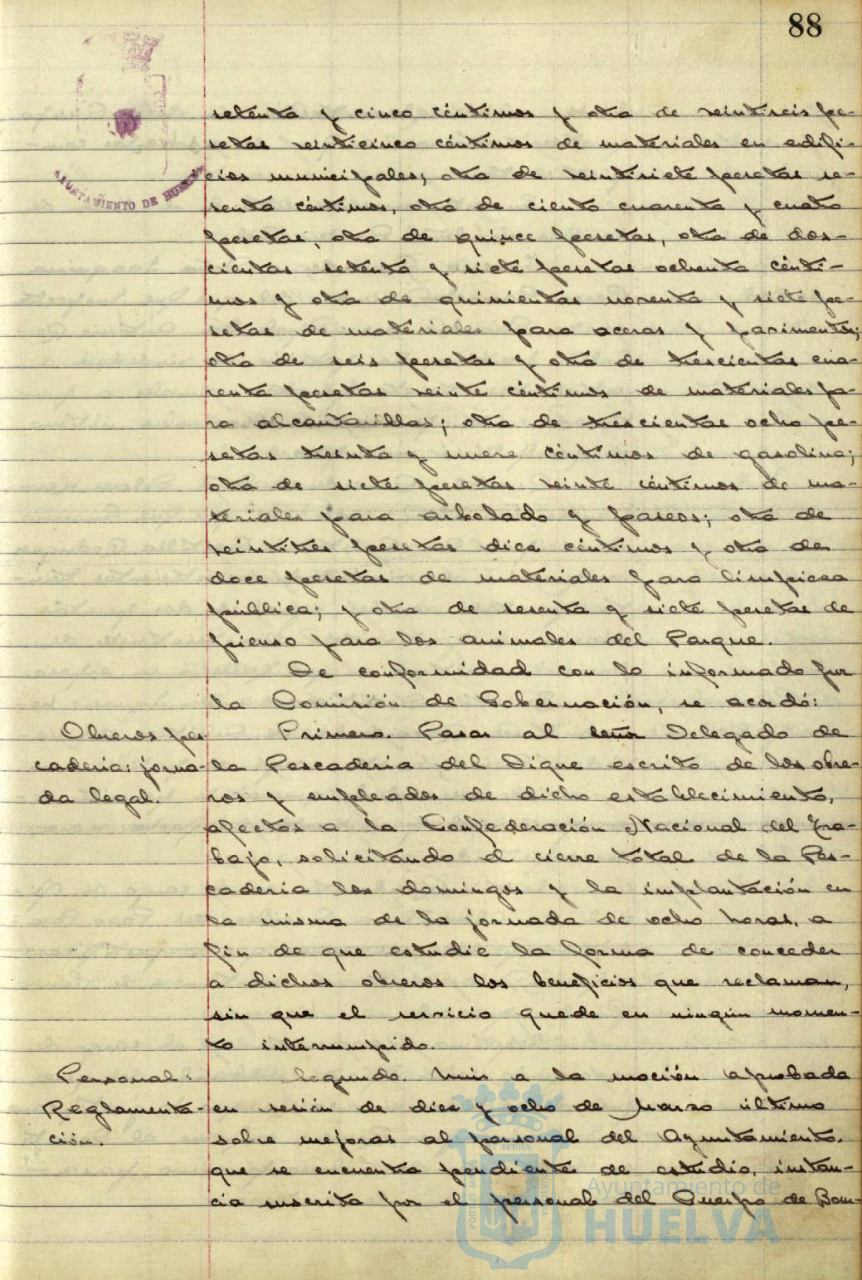 88
AYUNTAMIENTO DE HUELVA
setenta y cinco céntimos y otra de veintiseis pe-
setas veinticinco céntimos de materiales en edifi-
cios municipales; otra de veintisiete pesetas se-
senta céntimos, otra de ciento cuarenta y cuatro
pesetas, otra de quince pesetas, otra de dos-
cientas setenta y siete pesetas ochenta cénti-
mos y otra de quinientas noventa y siete pe-
setas de materiales para aceras y pavimentos;
otra de seis pesetas y otra de trescientas cua-
renta pesetas veinte céntimos de materiales pa-
ra alcantarillas; otra de trescientas ocho pe-
setas treinta y nueve céntimos de gasolina;
otra de siete pesetas veinte céntimos de ma-
teriales para arbolado y paseos; otra de
veintitres pesetas diez céntimos y otra de
doce pesetas de materiales para limpieza
pública; y otra de sesenta y siete pesetas de
pienso para los animales del Parque.
De conformidad con lo informado por
la Comisión de Gobernación, se acordó:
Obreros pes-
cadería: jorna-
da legal.
Primero. Pasar al señor Delegado de
la Pescadería del Dique escrito de los obre-
ros y empleados de dicho establecimiento,
afectos a la Confederación Nacional del Tra-
bajo, solicitando el cierre total de la Pes-
cadería los domingos y la implantación en
la misma de la jornada de ocho horas, a
fin de que estudie la forma de conceder
a dichos obreros los beneficios que reclaman,
sin que el servicio quede en ningún momen-
to interrumpido.
Personal:
Reglamenta-
ción.
Segundo. Unir a la moción aprobada
en sesión de diez y ocho de Marzo último
sobre mejoras al personal del Ayuntamiento,
que se encuentra pendiente de estudio, instan-
cia suscrita por el personal del Cuerpo de Bom-
Ayuntamiento de
HUELVA